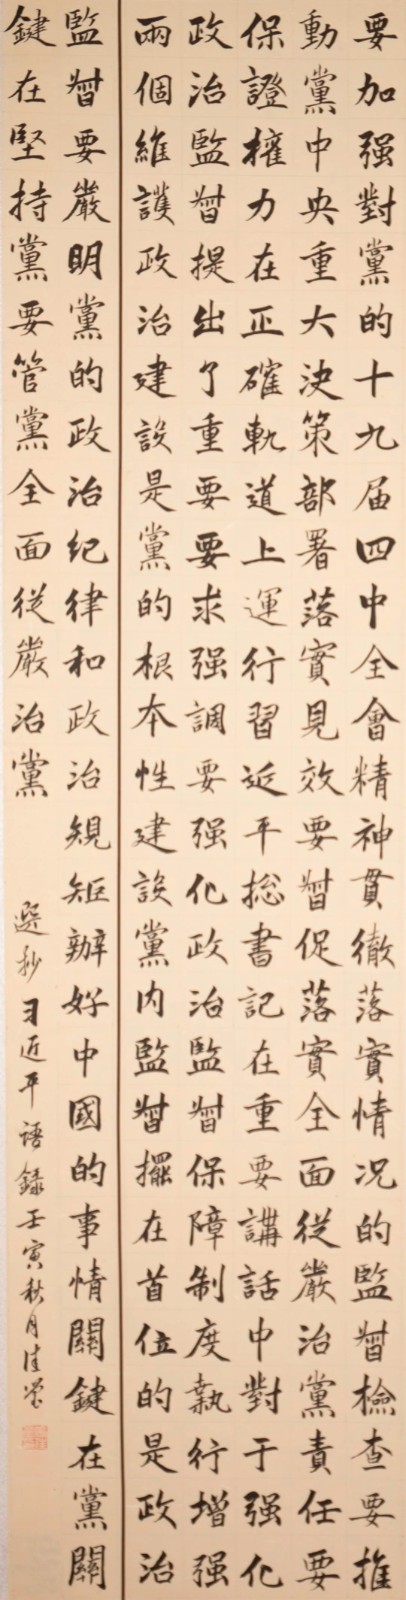 要加强對黨的十九届四中全會精神貫徹落實情况的監督檢查要推
動黨中央重大決策部署落實見效要督促落實全面從嚴治黨責任要
保證權力在正確軌道上運行習近平総書記在重要講話中對于强化
政治監督提出了重要要求强調要强化政治監督保障制度執行增强
兩個維護政治建設是黨的根本性建設黨内監督擺在首位的是政治
監督要嚴明黨的政治纪律和政治規矩辦好中國的事情關鍵在黨關
鍵在堅持黨要管黨全面從嚴治黨
選抄习近平語録壬寅秋月